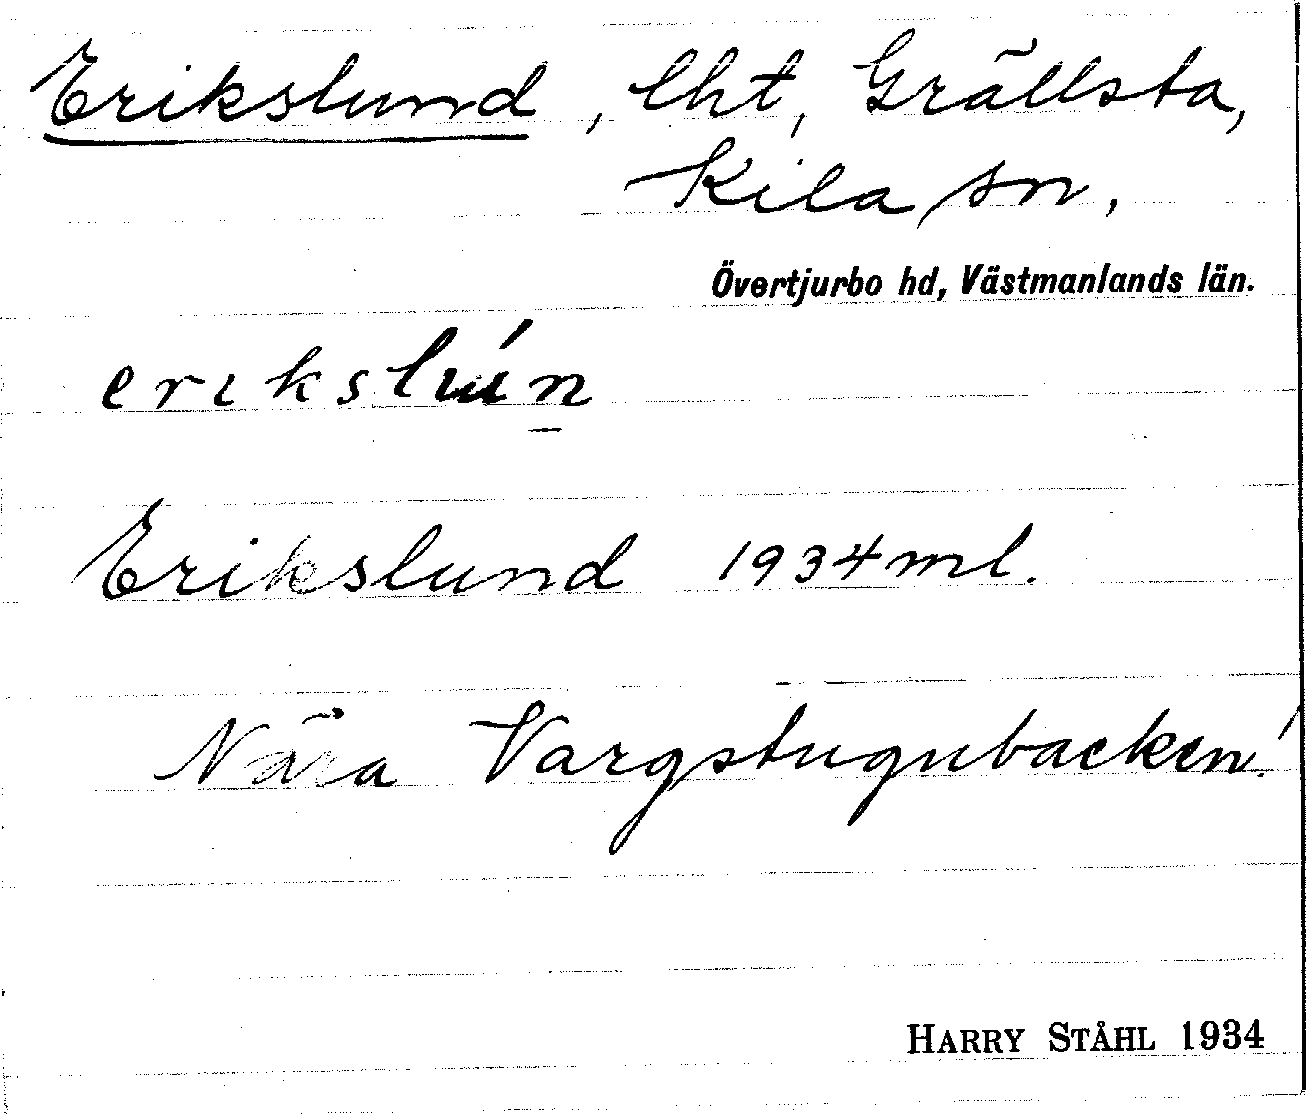 Erikslund, lht, Grällsta,
Kila sn,
Övertjurbo hd, Västmanlands län.
erikslún
Erikslund 1934 ml.
Nära Vargstugubacken!
HARRY STÅHL 1934